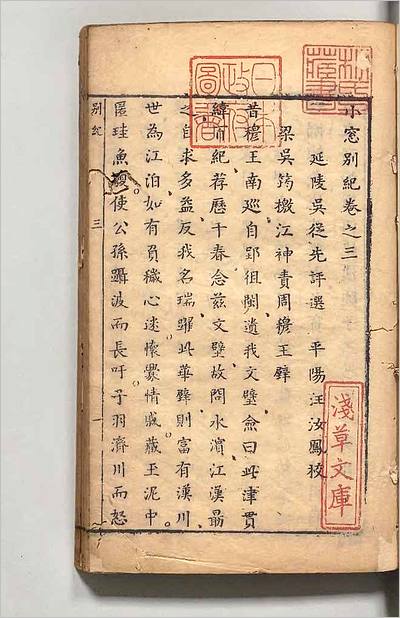 林氏藏書
日本政府圖書
小窓別紀卷之三
延陵吳從先評選 平陽汪汝鳳校
梁吳筠檄江神責周穆王璧
昔穆王南巡自郢徂閩遺我文璧僉曰此津貫
緯百紀荐歷千春念茲文璧故問水濱江漢最
之自求多益反我名瑞畀此華璧則富有漢川
世為江泊如有負穢心迷懷爨情戚藏玉泥中
匿珪魚腹使公孫躡波而長吁子羽濟川而怒
別紀 三 一
淺草文庫